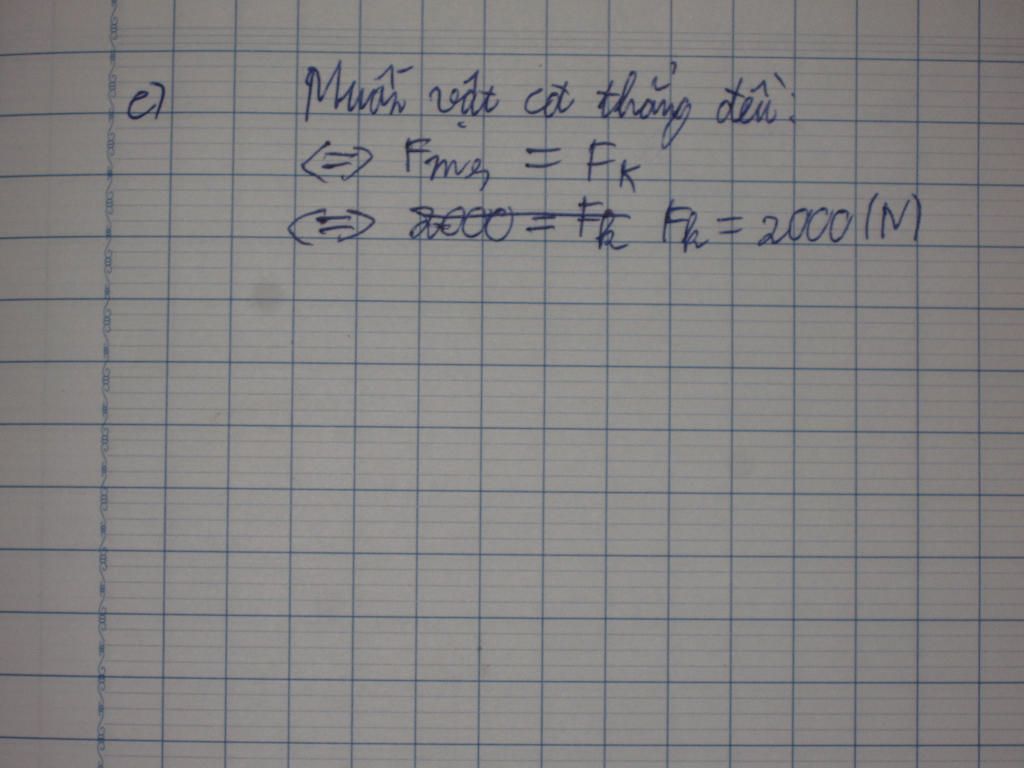 c) Muốn vật cđ thẳng đều:
<=> Fms = Fk
<=> 2000 = Fk Fk = 2000 (N)